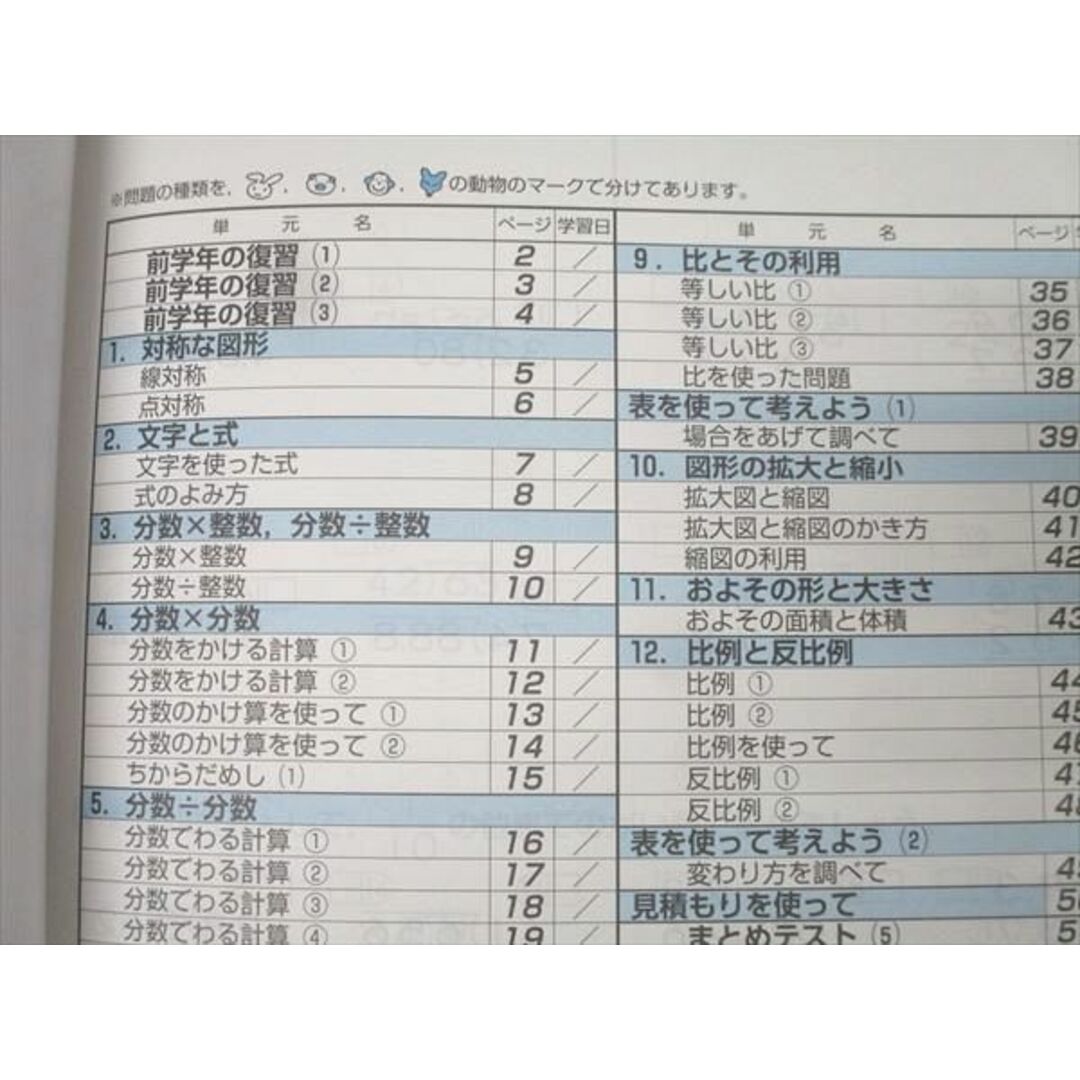 ※問題の種類を, , , , の動物のマークで分けてあります。
単元名 ページ 学習日
前学年の復習 (1) 2 /
前学年の復習 (2) 3 /
前学年の復習 (3) 4 /
1. 対称な図形
線対称 5 /
点対称 6 /
2. 文字と式
文字を使った式 7 /
式のよみ方 8 /
3. 分数×整数, 分数÷整数
分数×整数 9 /
分数÷整数 10 /
4. 分数×分数
分数をかける計算 ① 11 /
分数をかける計算 ② 12 /
分数のかけ算を使って ① 13 /
分数のかけ算を使って ② 14 /
ちからだめし (1) 15 /
5. 分数÷分数
分数でわる計算 ① 16 /
分数でわる計算 ② 17 /
分数でわる計算 ③ 18 /
分数でわる計算 ④ 19 /
単元名 ページ
9. 比とその利用
等しい比 ① 35
等しい比 ② 36
等しい比 ③ 37
比を使った問題 38
表を使って考えよう (1)
場合をあげて調べて 39
10. 図形の拡大と縮小
拡大図と縮図 40
拡大図と縮図のかき方 41
縮図の利用 42
11. およその形と大きさ
およその面積と体積 43
12. 比例と反比例
比例 ① 44
比例 ② 45
比例を使って 46
反比例 ① 47
反比例 ② 48
表を使って考えよう (2)
変わり方を調べて 49
見積もりを使って 50
まとめテスト (5) 5